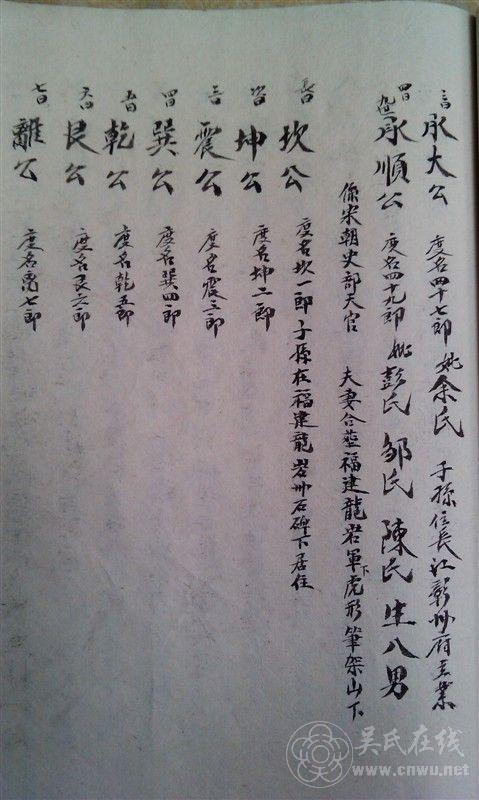 三曰 承大公 度名四十七郎 妣余氏 子孫住長江彰州府立業
四曰 承順公 度名四十九郎 妣彭氏 鄒氏 陳氏 生八男
係宋朝吏部天官 夫妻合塟福建龍岩軍下虎形筆架山下
長曰 坎公 度名坎一郎 子孫在福建龍岩州石碑下居住
次曰 坤公 度名坤二郎
三曰 震公 度名震三郎
四曰 巽公 度名巽四郎
五曰 乾公 度名乾五郎
六曰 艮公 度名艮六郎
七曰 離公 度名离七郎
吴氏在线
www.cnwu.net